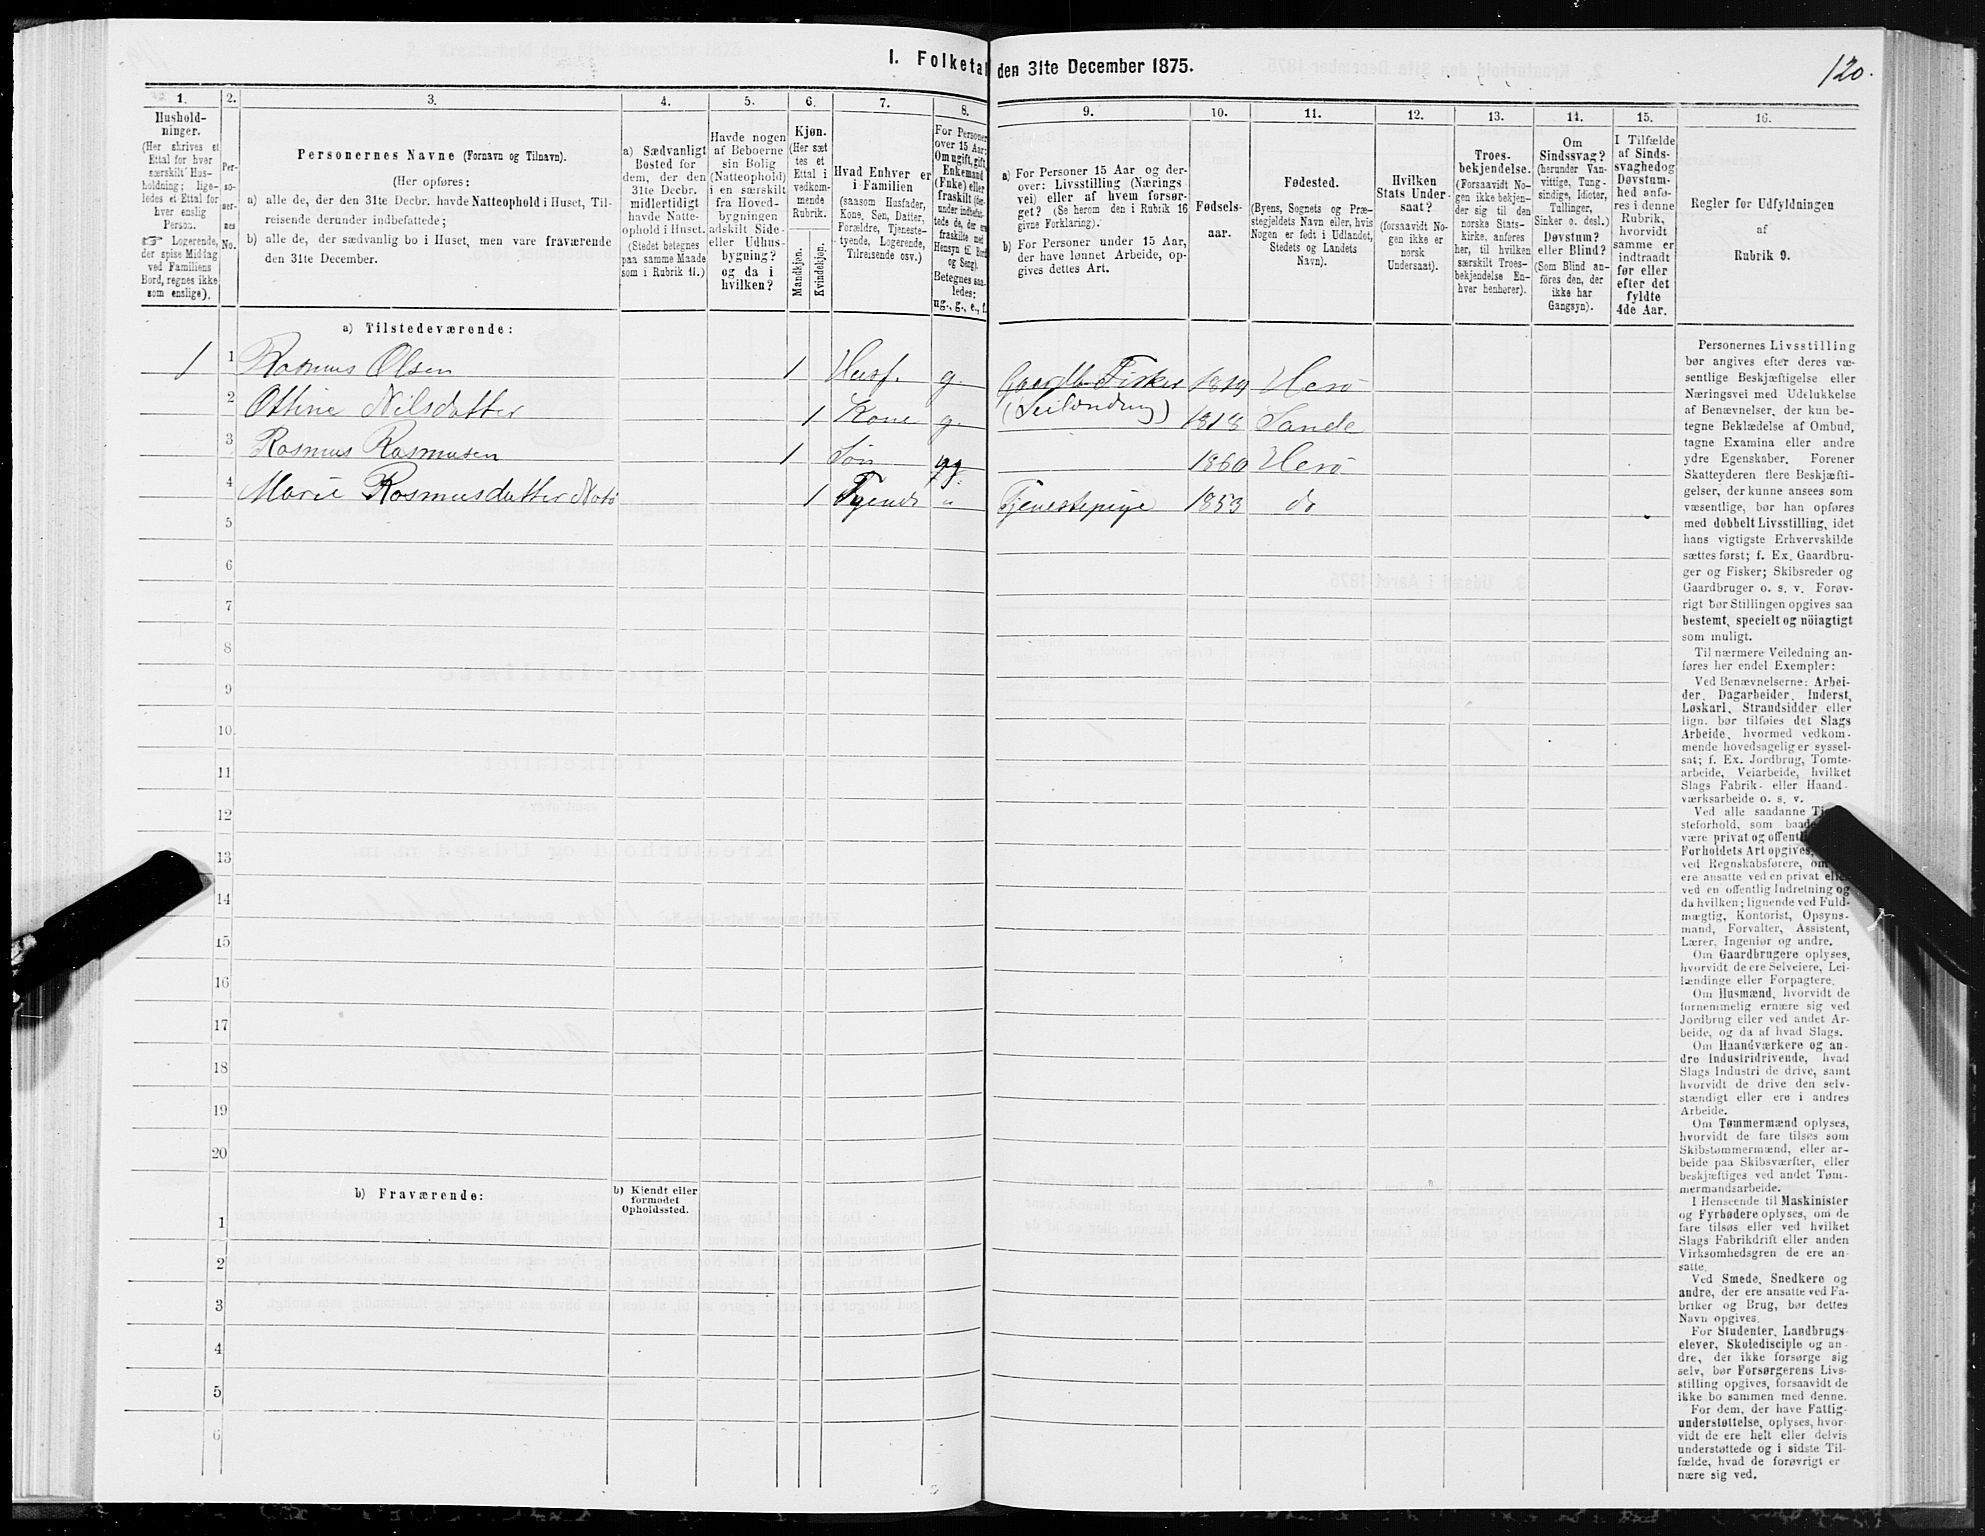 I. Folketal den 31te December 1875.
120.
1.
2.
3.
4.
5.
6.
7.
8.
9.
10.
11.
12.
13.
14.
15.
16.
Hushold-
ninger.
(Her skrives et
Ettal for hver
særskilt Hus-
holdning; lige-
ledes et Ettal for
hver enslig
Person.
☞ Logerende,
der spise Middag
ved Familiens
Bord, regnes ikke
som enslige).
Per-
so-
ner-
nes
No.
Personernes Navne (Fornavn og Tilnavn).
(Her opføres:
a) alle de, der den 31te Decbr. havde Natteophold i Huset, Til-
reisende derunder indbefattede;
b) alle de, der sædvanlig bo i Huset, men vare fraværende
den 31te December.
a) Sædvanligt
Bosted for
dem, der den
31te Decbr.
midlertidigt
havde Natte-
ophold i Huset.
(Stedet betegnes
paa samme Maade
som i Rubrik 11.)
Havde nogen
af Beboerne
sin Bolig
(Natteophold)
i en særskilt
fra Hoved-
bygningen
adskilt Side-
eller Udhus-
bygning?
og da i
hvilken?
Kjøn.
(Her sæt-
tes et
Ettal i
vedkom-
mende
Rubrik.
Mandkjøn.
Kvindekjøn.
Hvad Enhver er
i Familien
(saasom Husfader,
Kone, Søn, Datter,
Forældre, Tjeneste-
tyende, Logerende,
Tilreisende osv.)
For Personer
over 15 Aar:
Om ugift, gift,
Enkemand
(Enke) eller
fraskilt
Betegnes saa-
ledes:
ug., g., e., f.
a) For Personer 15 Aar og der-
over: Livsstilling (Nærings-
vei) eller af hvem forsør-
get? (Se herom den i Rubrik 16
givne Forklaring).
b) For Personer under 15 Aar,
der have lønnet Arbeide, op-
gives dettes Art.
Fødsels-
aar.
Fødested.
(Byens, Sognets og Præ-
stegjeldets Navn eller, hvis
Nogen er født i Udlandet,
Stedets og Landets
Navn).
Hvilken
Stats Under-
saat?
(forsaavidt No-
gen ikke er
norsk
Undersaat).
Troes-
bekjendelse.
(Forsaavidt No-
gen ikke bekjen-
der sig til den
norske Stats-
kirke, anføres
her, til hvilken
særskilt Troes-
bekjendelse En-
hver henhører).
Om
Sindssvag?
(herunder Van-
vittige, Tung-
sindige, Idioter,
Tullinger,
Sinker o. desl.)
Døvstum?
eller Blind?
(Som Blind an-
føres den, der
ikke har
Gangsyn).
I Tilfælde
af Sinds-
svaghed og
Døvstum-
hed anfø-
res i denne
Rubrik,
hvorvidt
samme er
indtraadt
før eller
efter det
fyldte
4de Aar.
Regler for Udfyldningen
af
Rubrik 9.
a) Tilstedeværende:
1 1 Rasmus Olsen 1 Husf. g. Gaardb. Fisker 1819 Herø
2 Ottine Nilsdatter 1 Kone g. (Leilænding) 1818 Sande
3 Rasmus Rasmusen 1 Søn ug. 1860 Herø
4 Marie Rasmusdatter 1 Tyende u Tjenestepige 1853 do
5
6
7
8
9
10
11
12
13
14
15
16
17
18
19
20
b) Fraværende:
b) Kjendt eller
formodet
Opholdssted.
1
2
3
4
5
6
Personernes Livsstilling
bør angives efter deres væ-
sentlige Beskjæftigelse eller
Næringsvei med Udelukkelse
af Benævnelser, der kun be-
tegne Beklædelse af Ombud,
tagne Examina eller andre
ydre Egenskaber. Forener
Skatteyderen flere Beskjæfti-
gelser, der kunne ansees som
væsentlige, bør han opføres
med dobbelt Livsstilling, idet
hans vigtigste Erhvervskilde
sættes først; f. Ex. Gaardbru-
ger og Fisker; Skibsreder og
Gaardbruger o. s. v. Forøv-
rigt bør Stillingen opgives saa
bestemt, specielt og nöiagtigt
som muligt.
Til nærmere Veiledning an-
føres her endel Exempler:
Ved Benævnelserne: Arbei-
der, Dagarbeider, Inderst,
Løskarl, Strandsidder eller
lign. bør tilføies det Slags
Arbeide, hvormed vedkom-
mende hovedsagelig er syssel-
sat; f. Ex. Jordbrug, Tomte-
arbeide, Veiarbeide, hvilket
Slags Fabrik- eller Haand-
værksarbeide o. s. v.
Ved alle saadanne
steforhold, som
være privat og
Forholdets Art opgives,
ved Regnskabsførere,
ere ansatte ved en privat eller
ved en offentlig Indretning og
da hvilken; lignende ved Fuld-
mægtig, Kontorist, Opsyns-
mand, Forvalter, Assistent,
Lærer, Ingeniør og andre.
Om Gaardbrugere oplyses,
hvorvidt de ere Selveiere, Lei-
lændinge eller Forpagtere.
Om Husmænd, hvorvidt de
fornemmelig ernære sig ved
Jordbrug eller ved andet Ar-
beide, og da af hvad Slags.
Om Haandværkere og an-
dre Industridrivende, hvad
Slags Industri de drive, samt
hvorvidt de drive den selv-
stændigt eller ere i andres
Arbeide.
Om Tømmermænd oplyses,
hvorvidt de fare tilsøs som
Skibstømmermænd, eller ar-
beide paa Skibsværfter, eller
beskjæftiges ved andet Tøm-
mermandsarbeide.
I Henseende til Maskinister
og Fyrbødere oplyses, om de
fare tilsøs eller ved hvilket
Slags Fabrikdrift eller anden
Virksomhedsgren de ere an-
satte.
Ved Smede, Snedkere og
andre, der ere ansatte ved Fa-
briker og Brug, bør dettes
Navn opgives.
For Studenter, Landbrugs-
elever, Skoledisciple og an-
dre, der ikke forsørge sig
selv, bør Forsørgerens Livs-
stilling opgives, forsaavidt de
ikke bo sammen med denne.
For dem, der have Fattig-
understøttelse, oplyses, hvor-
vidt de ere helt eller delvis
understøttede og i sidste Til-
fælde, hvad de forøvrigt er-
nære sig ved.